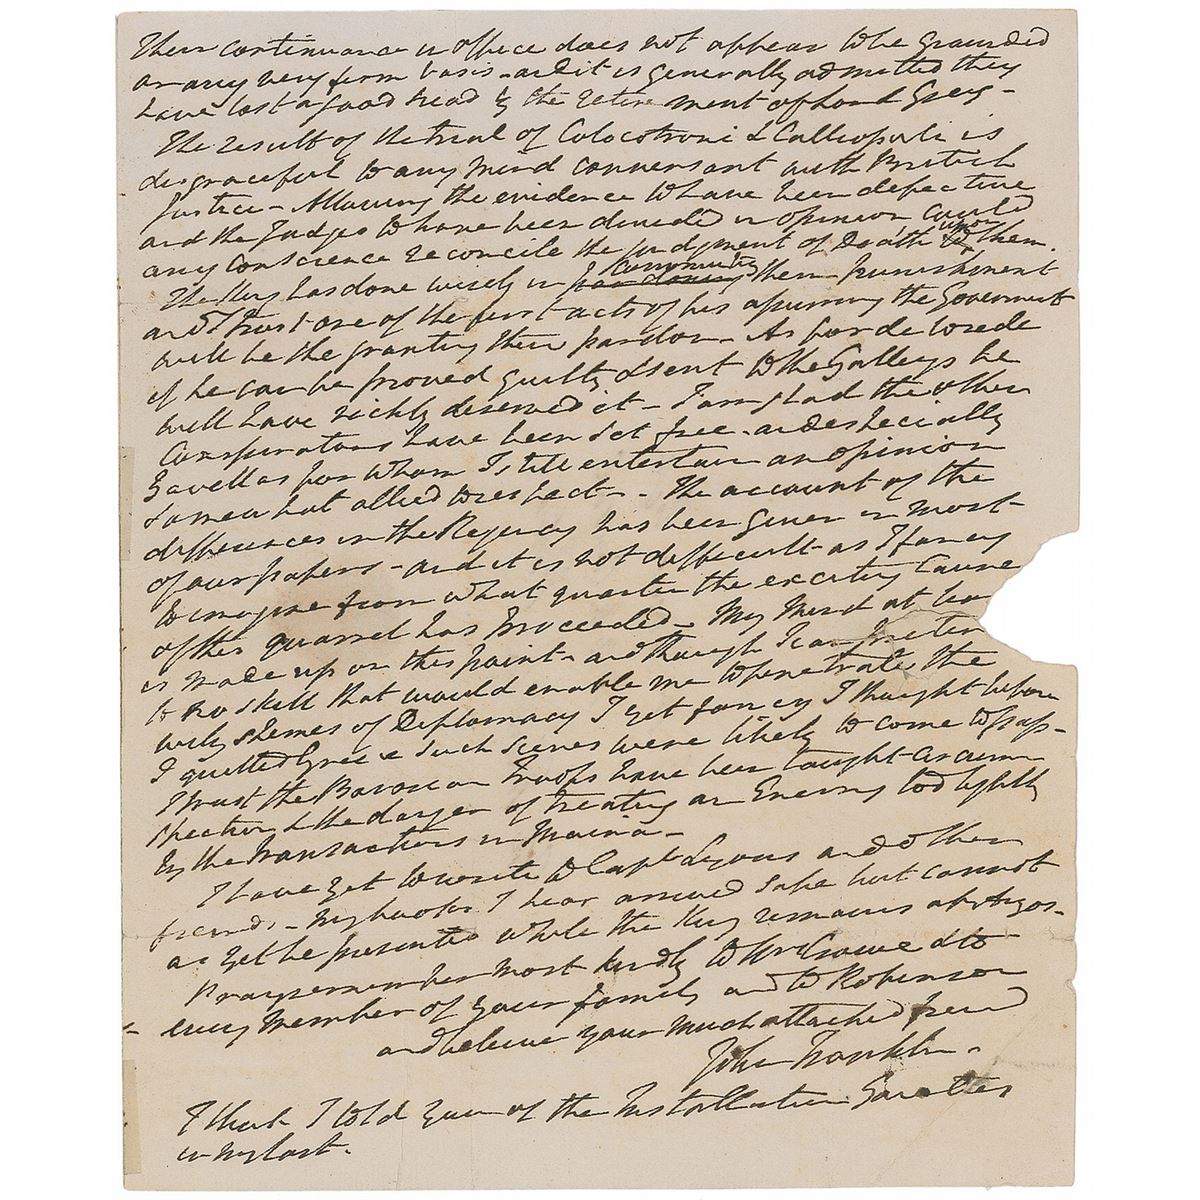 Their continuance in office does not appear to be grounded
on any very firm basis - and it is generally admitted they
have lost a good head by the retirement of Lord Grey -
The result of the trial of Colocotroni & Calliopuli is
disgraceful to any mind conversant with British
Justice - Allowing the evidence to have been defective
and the Judges to have been divided in opinion could
any conscience reconcile the judgment of Death upon them.
The King has done wisely in commuting their punishment
and I trust one of the first acts of his assuming the Government
will be the granting their pardon - As for de
if he can be proved guilty & sent to the Galleys he
will have richly deserved it - I am glad the other
Conspirators have been set free - and especially
Zavellas for whom I still entertain an opinion
somewhat allied to respect - The account of the
differences in the Regency has been given in most
of our papers - and it is not difficult as I fancy
to imagine from what quarter the exciting Cause
of this quarrel has proceeded - My mind at
is made up on this point - and though I can
to no skill that would enable me to penetrate the
wily shemes of Diplomacy I yet fancy I thought before
I quitted Greece such scenes were likely to come to pass -
I trust the Bavarian Troops have been taught circum
spection & the danger of treating an Enemy too lightly
by the transactions in Maina -
I have yet to write to Capt Lyons and other
friends - my books I hear arrived safe but cannot
as yet be presented while the King remains at Argos -
Pray remember most kindly to Mrs Crowe & to
every member of your family and to Robinson
and believe your much attached friend
John Franklin -
I think I told you of the Installation Gaieties
in my last.